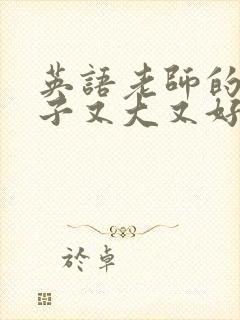 英語老師的
子又大又好
於卓